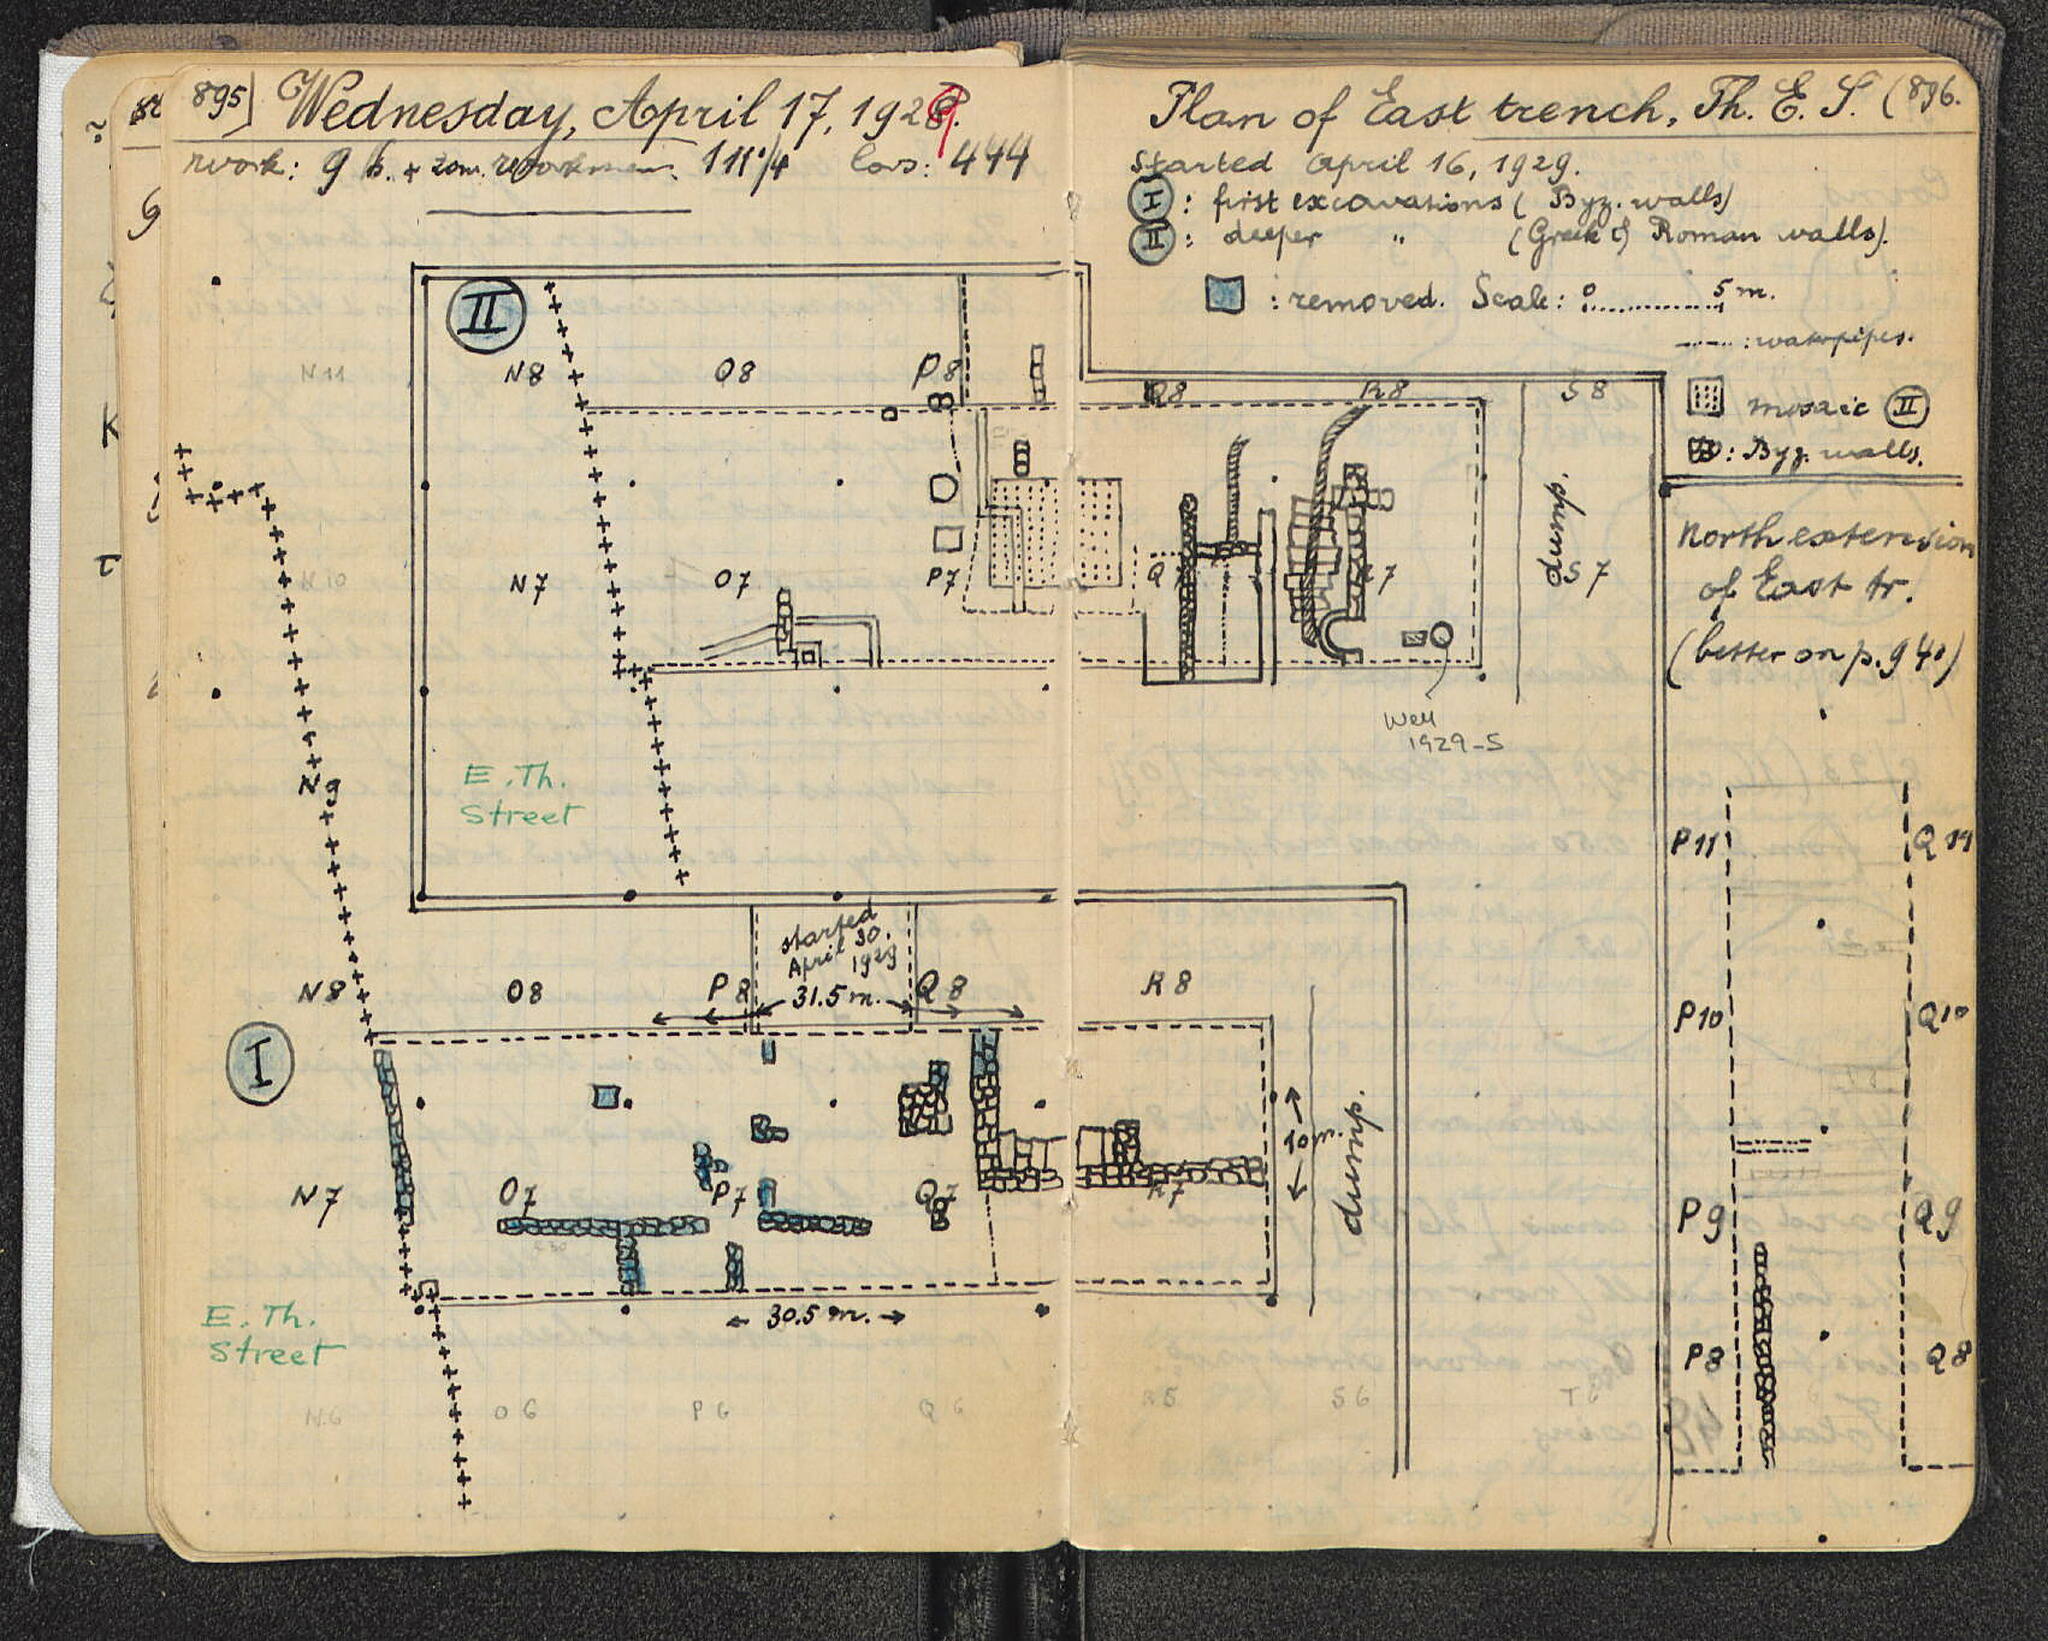 895) Wednesday, April 17, 1929.
work: 9 h. + 20 m. workmen: 111¼ Cars: 444
II
N11
N8 O8 P8
N10
N7 O7 P7
E. Th.
Street
N9
started
April 30.
1929
31.5 m.
N8 O8 P8 Q8
I
N7 O7 P7 Q7
30.5 m.
E. Th.
Street
N6 O6 P6 Q6
Plan of East trench, Th. E. S. (896.
Started April 16, 1929.
I : first excavations (Byz. walls)
II : deeper " (Greek & Roman walls).
: removed. Scale: 0 5 m.
: waterpipes.
mosaic II
: Byz. walls.
Q8 R8 S8
Q7 R7 S7
dump.
Well
1929-5
North extension
of East tr.
(better on p. 940)
R8
R7
10 m.
dump.
R5 S6 T6
P11 Q11
P10 Q10
P9 Q9
P8 Q8